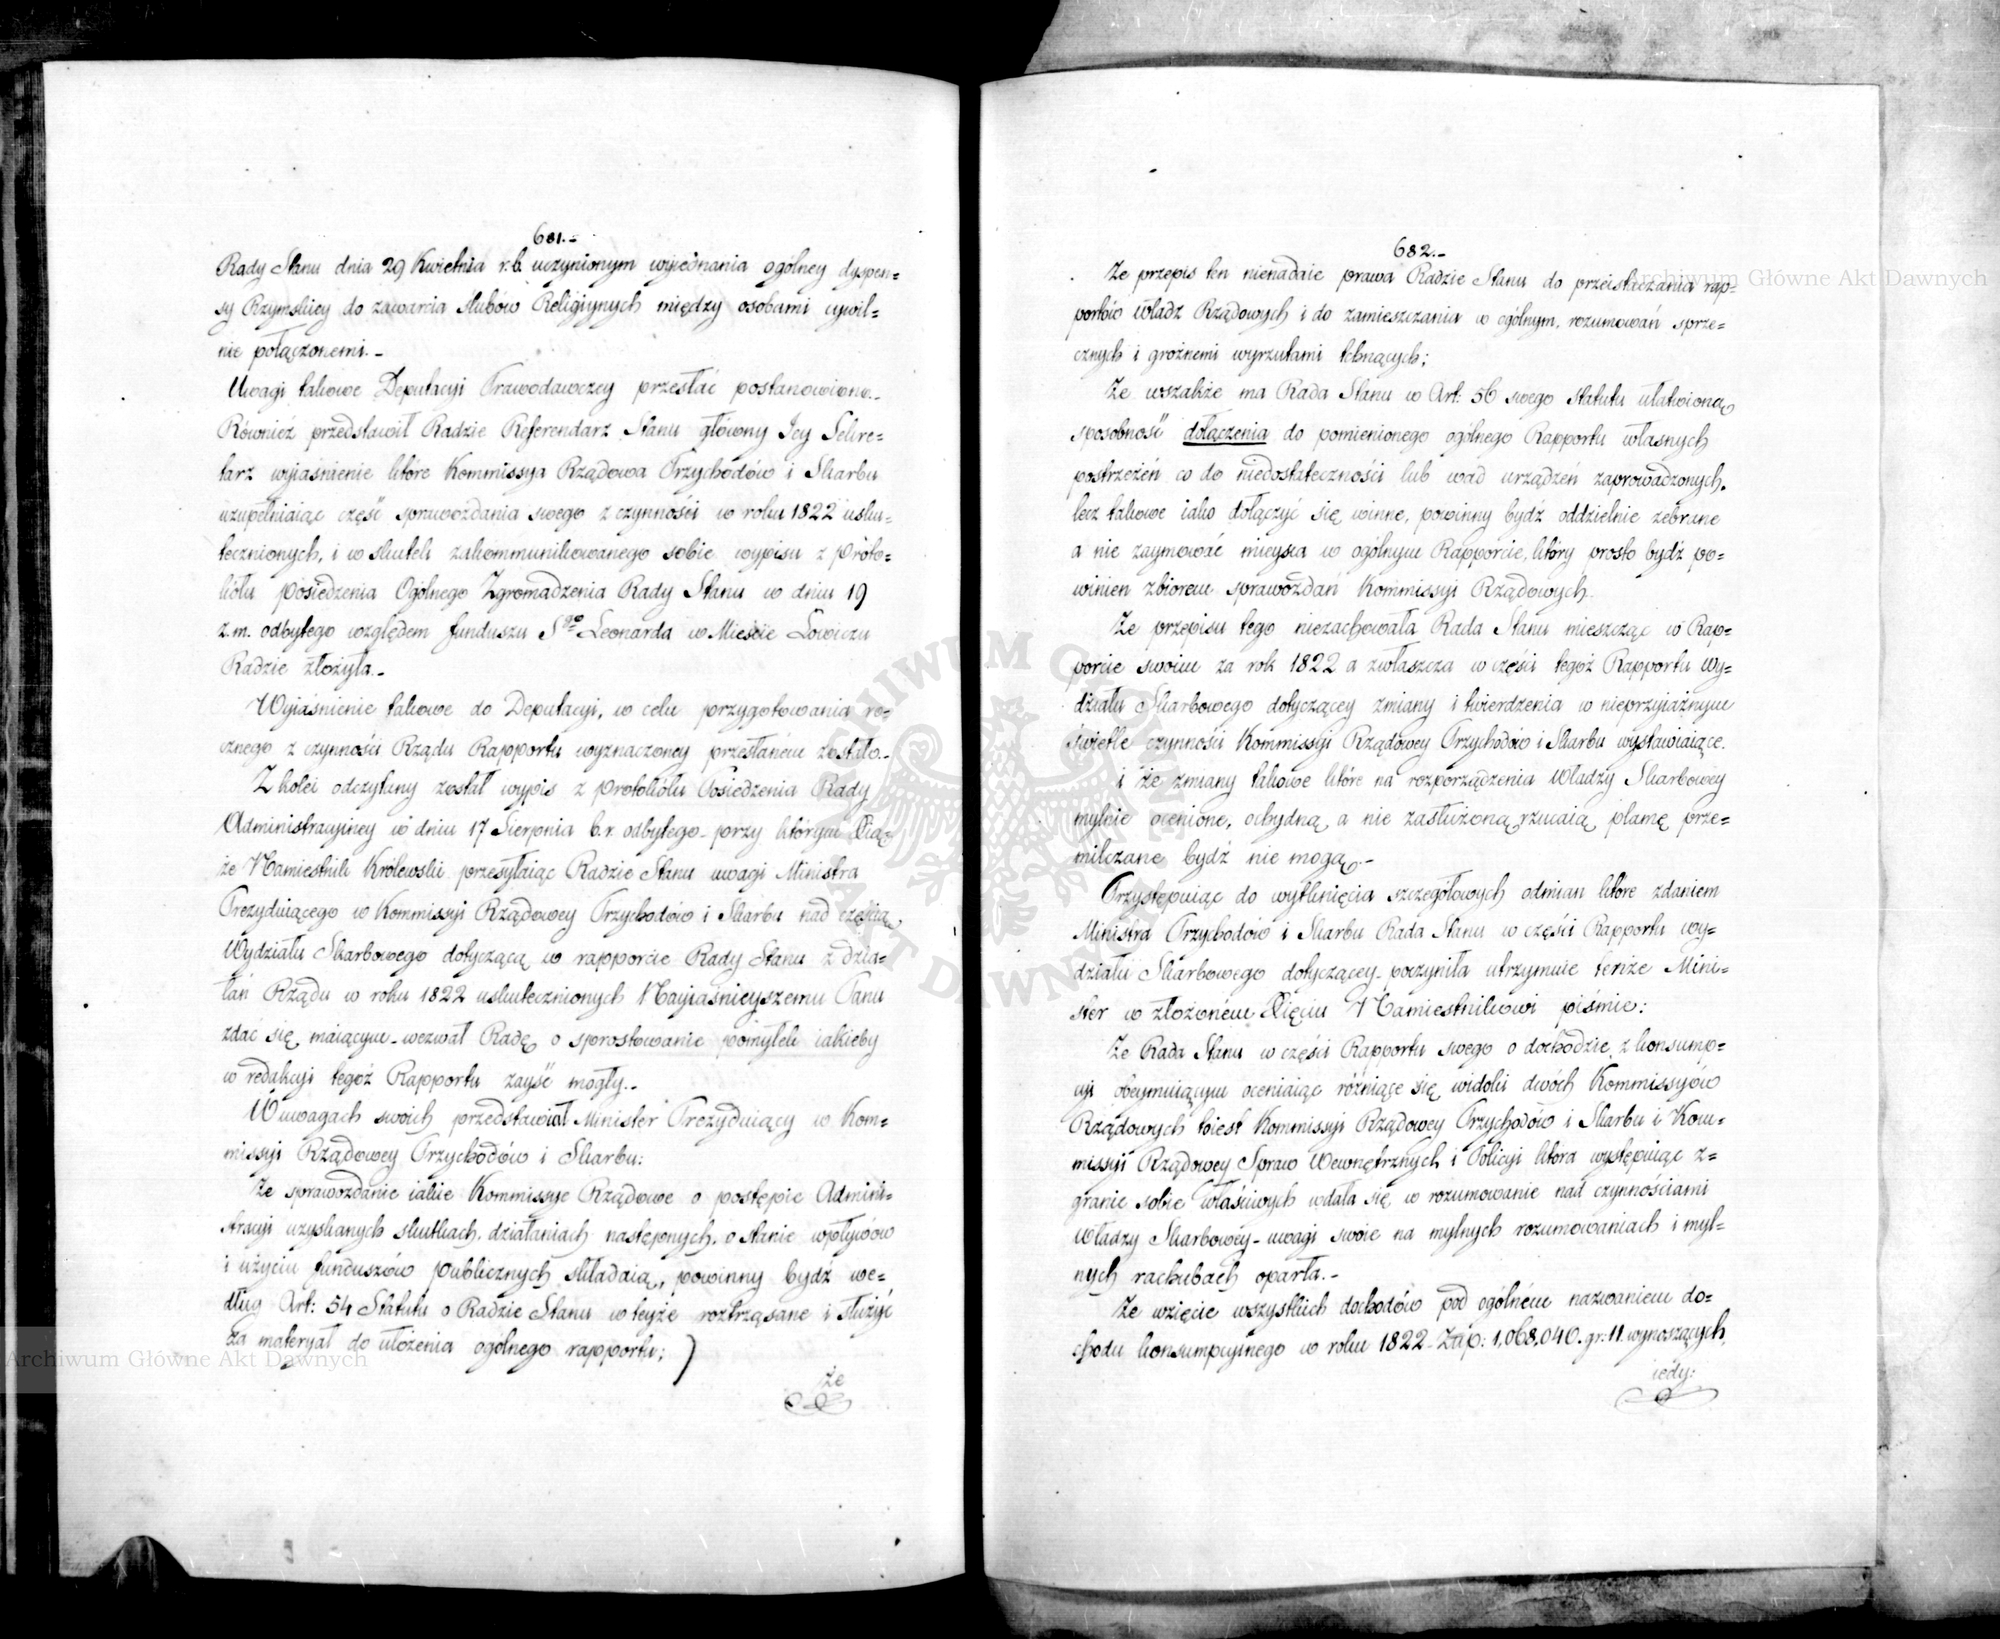 681.-
Rady Stanu dnia 29 Kwietnia r.b. uczynionym wyjednania ogólney dyspen=
sy Rzymskiey do zawarcia ślubów Religiynych między osobami cywil=
nie połączonemi.-
Uwagi takowe Deputacyi Prawodawczey przesłać postanowiono.-
Również przedstawił Radzie Referendarz Stanu główny Jey Sekre=
tarz wyjaśnienie które Kommissya Rządowa Przychodów i Skarbu
uzupełniaiąc część sprawozdania swego z czynności w roku 1822 usku=
tecznionych, i w skutek zakommunikowanego sobie wypisu z proto=
kółu posiedzenia Ogólnego Zgromadzenia Rady Stanu w dniu 19
z.m. odbytego względem funduszu Sgo Leonarda w Mieście Łowiczu
Radzie złożyła.-
Wyiaśnienie takowe do Deputacyi, w celu przygotowania ro=
cznego z czynności Rządu Rapportu wyznaczoney przesłanem zostało.-
Z kolei odczytany został wypis z protokółu Posiedzenia Rady
Administracyiney w dniu 17 Sierpnia b.r. odbytego- przy którym Xią=
że Namiestnik Królewski przesyłaiąc Radzie Stanu uwagi Ministra
Prezyduiącego w Kommissyi Rządowey Przychodów i Skarbu nad częścią
Wydziału Skarbowego dotyczącą w rapporcie Rady Stanu z dzia=
łań Rządu w roku 1822 uskutecznionych Nayiaśnieyszemu Panu
zdać się maiącym- wezwał Radę o sprostowanie pomyłek iakieby
w redakcyi tegoż Rapportu zayść mogły.-
W uwagach swoich przedstawiał Minister Prezyduiący w Kom=
missyi Rządowey Przychodów i Skarbu:
Że sprawozdanie iakie Kommissye Rządowe o postępie Admini=
stracyi uzyskanych skutkach, działaniach następnych, o stanie wpływów
i użyciu funduszów publicznych składaią, powinny bydź we=
dług Art: 54 Statutu o Radzie Stanu w teyże roztrząsane i służyć
za materyał do ułożenia ogólnego rapportu;
że
682.-
Że przepis ten nienadaie prawa Radzie Stanu do przeistaczania rap=
portów Władz Rządowych i do zamieszczania w ogólnym, rozumowań sprze=
cznych i groźnemi wyrzutami tchnących;
Że wszakże ma Rada Stanu w Art: 56 swego Statutu ułatwioną
sposobność dołączenia do pomienionego ogólnego Rapportu własnych
postrzeżeń co do niedostateczności lub wad urządzeń zaprowadzonych,
lecz takowe iako dołączyć się winne, powinny bydź oddzielnie zebrane
a nie zaymować mieysca w ogólnym Rapporcie, który prosto bydź po=
winien zbiorem sprawozdań Kommissyi Rządowych.
Że przepisu tego niezachowała Rada Stanu mieszcząc w Rap=
porcie swoim za rok 1822 a zwłaszcza w części tegoż Rapportu Wy=
działu Skarbowego dotyczącey zmiany i twierdzenia w nieprzyiaźnym
świetle czynności Kommissyi Rządowey Przychodów i Skarbu wystawiaiące.
i że zmiany takowe które na rozporządzenia Władzy Skarbowey
mylnie ocenione, ochydną a nie zasłużoną rzucaią plamę prze=
milczane bydź nie mogą.-
Przystępuiąc do wytknięcia szczegółowych odmian które zdaniem
Ministra Przychodów i Skarbu Rada Stanu w części Rapportu wy=
działu Skarbowego dotyczącey- poczyniła utrzymuie tenże Mini=
ster w złożonem Xięciu Namiestnikowi piśmie:
Że Rada Stanu w części Rapportu swego o dochodzie z konsump=
cyi obeymuiącym oceniaiąc różniące się widoki dwóch Kommissyów
Rządowych toiest Kommissyi Rządowey Przychodów i Skarbu i Kom=
missyi Rządowey Spraw Wewnętrznych i Policyi która występuiąc z=
granic sobie właściwych wdała się w rozumowanie nad czynnościami
Władzy Skarbowey- uwagi swoie na mylnych rozumowaniach i myl=
nych rachubach oparła.-
Że wzięcie wszystkich dochodów pod ogólnem nazwaniem do=
chodu konsumpcyinego w roku 1822- Złp: 1,068,040. gr: 11. wynoszących,
iedy:
Archiwum Główne Akt Dawnych
Archiwum Główne Akt Dawnych
ARCHIWUM GŁÓWNE AKT DAWNYCH